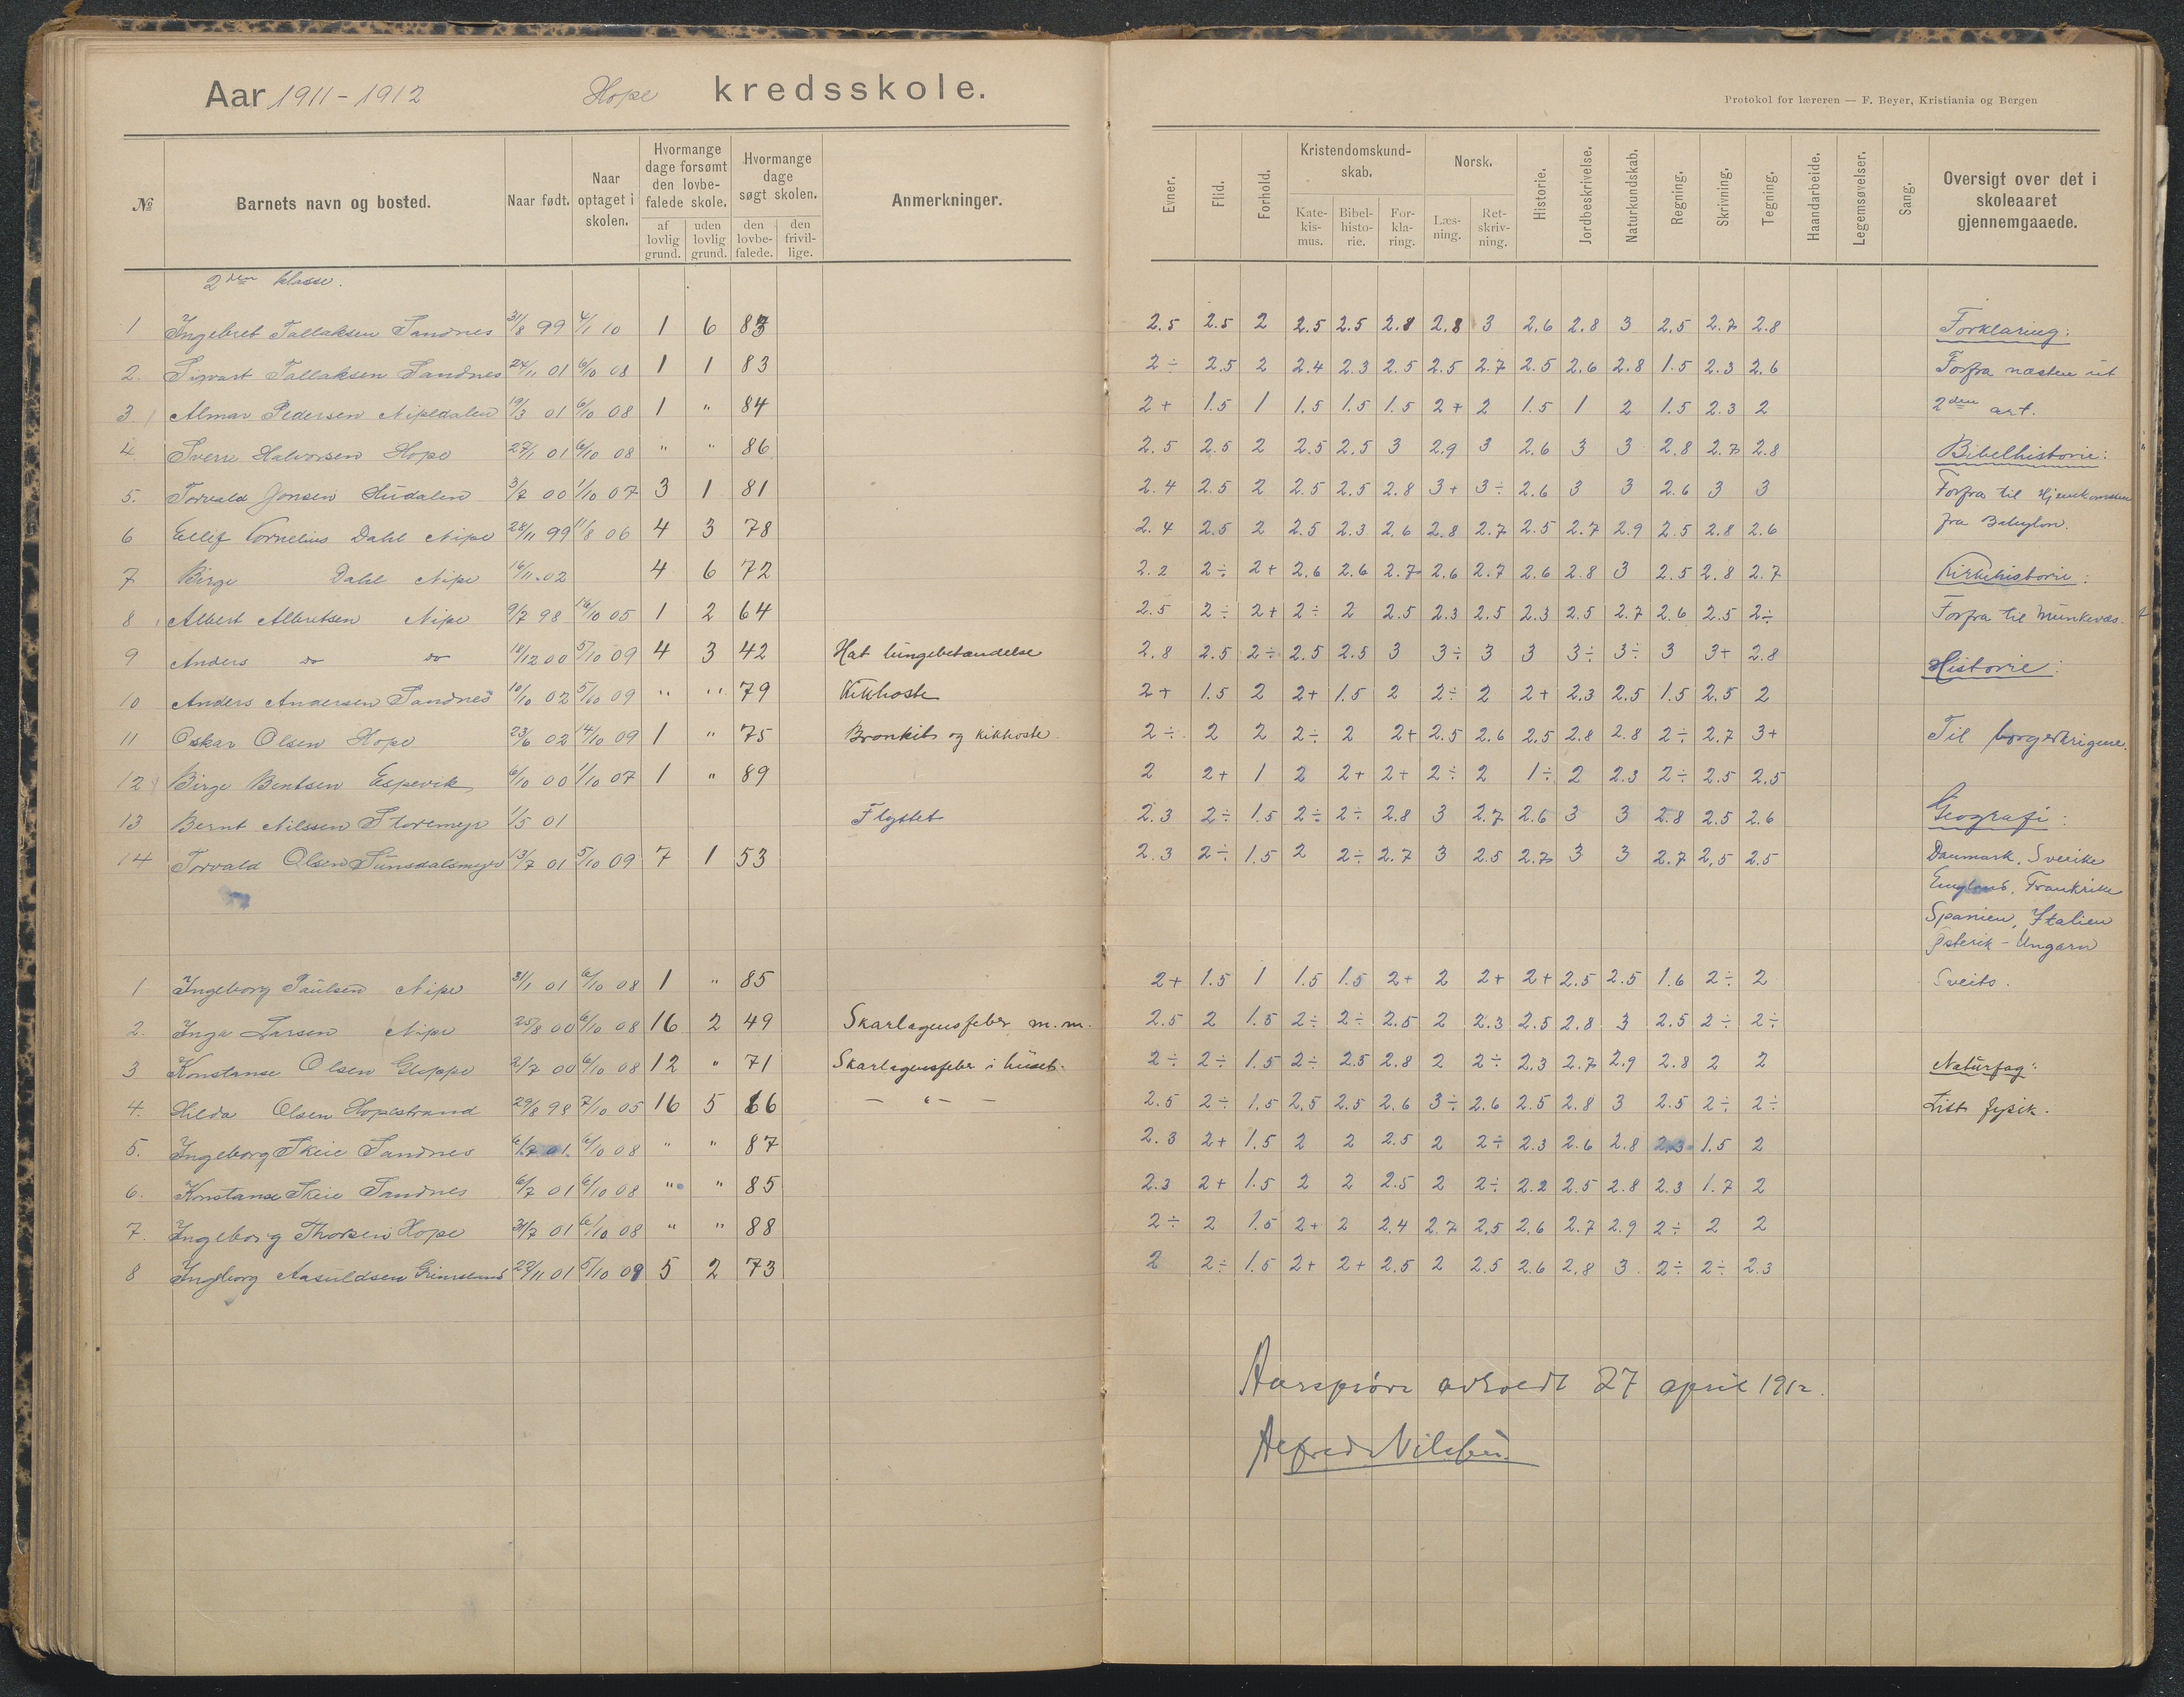 Aar 1911-1912 Hope kredsskole.
Protokol for læreren — F. Beyer, Kristiania og Bergen
№ Barnets navn og bosted. Naar født. Naar optaget i skolen. Hvormange dage forsømt den lovbefalede skole. af lovlig grund. uden lovlig grund. Hvormange dage søgt skolen. den lovbefalede. den frivillige. Anmerkninger.
Evner. Flid. Forhold. Kristendomskundskab. Katekismus. Bibelhistorie. Forklaring. Norsk. Læsning. Retskrivning. Historie. Jordbeskrivelse. Naturkundskab. Regning. Skrivning. Tegning. Haandarbeide. Legemsøvelser. Sang. Oversigt over det i skoleaaret gjennemgaaede.
2den klasse.
1 Ingebret Tallaksen Sandnes 31/8 99 4/1 10 1 6 83
2. Sigvart Tallaksen Sandnes 24/11 01 6/10 08 1 1 83
3 Almar Pedersen Nipedalen 19/3 01 6/10 08 1 " 84
4. Sverre Halvorsen Hope 27/1 01 6/10 08 " " 86
5. Torvald Jonsen Hudalen 3/7 00 1/10 07 3 1 81
6 Ellef Kornelius Dahl Nipe 28/11 99 11/8 06 4 3 78
7 Birge Dahl Nipe 16/11.02 4 6 72
8 Albert Albretsen Nipe 9/7 98 16/10 05 1 2 64
9 Anders do do 18/12 00 5/10 09 4 3 42 Hat lungebetændelse
10 Anders Andersen Sandnes 10/10 02 5/10 09 " " 79 Kikhoste
11 Oskar Olsen Hope 23/6 02 14/10 09 1 " 75 Bronkit og kikhoste.
12 Birge Bentsen Espevik 6/10 00 1/10 07 1 " 89
13 Bernt Nilssen Storemyr 1/5 01 Flyttet
14 Torvald Olsen Sunsdalsmyr 13/7 01 5/10 09 7 1 53
1 Ingeborg Paulsen Nipe 31/1 01 6/10 08 1 " 85
2. Inga Larsen Nipe 25/8 00 6/10 08 16 2 49 Skarlagensfeber m.m.
3 Konstanse Olsen Gloppe 2/7 00 6/10 08 12 " 71 Skarlagensfeber i huset.
4. Hilda Olsen Hopestrand 29/8 98 7/10 05 16 5 66 — " — —
5. Ingeborg Skeie Sandnes 6/7 01. 6/10 08 " " 87
6. Konstanse Skeie Sandnes 6/7 01 6/10 08 " " 85
7. Ingeborg Thorsen Hope 31/7 01 6/10 08 " " 88
8 Ingeborg Aasuldsen 29/11 01 5/10 09 5 2 73
2.5 2.5 2 2.5 2.5 2.8 2.8 3 2.6 2.8 3 2.5 2.7 2.8
2÷ 2.5 2 2.4 2.3 2.5 2.5 2.7 2.5 2.6 2.8 1.5 2.3 2.6
2+ 1.5 1 1.5 1.5 1.5 2+ 2 1.5 1 2 1.5 2.3 2
2.5 2.5 2 2.5 2.5 3 2.9 3 2.6 3 3 2.8 2.7 2.8
2.4 2.5 2 2.5 2.5 2.8 3+ 3÷ 2.6 3 3 2.6 3 3
2.4 2.5 2 2.5 2.3 2.6 2.8 2.7 2.5 2.7 2.9 2.5 2.8 2.6
2.2 2÷ 2+ 2.6 2.6 2.7 2.6 2.7 2.6 2.8 3 2.5 2.8 2.7
2.5 2÷ 2+ 2÷ 2 2.5 2.3 2.5 2.3 2.5 2.7 2.6 2.5 2÷
2.8 2.5 2÷ 2.5 2.5 3 3÷ 3 3 3÷ 3÷ 3 3+ 2.8
2+ 1.5 2 2+ 1.5 2 2÷ 2 2+ 2.3 2.5 1.5 2.5 2
2÷ 2 2 2÷ 2 2+ 2.5 2.6 2.5 2.8 2.8 2÷ 2.7 3+
2 2+ 1 2 2+ 2+ 2÷ 2 1÷ 2 2.3 2÷ 2.5 2.5
2.3 2÷ 1.5 2÷ 2÷ 2.8 3 2.7 2.6 3 3 2.8 2.5 2.6
2.3 2÷ 1.5 2 2÷ 2.7 3 2.5 2.7 3 3 2.7 2.5 2.5
2+ 1.5 1 1.5 1.5 2+ 2 2+ 2+ 2.5 2.5 1.6 2÷ 2
2.5 2 1.5 2÷ 2÷ 2.5 2 2.3 2.5 2.8 3 2.5 2÷ 2÷
2÷ 2÷ 1.5 2÷ 2.5 2.8 2 2÷ 2.3 2.7 2.9 2.8 2 2
2.5 2÷ 1.5 2.5 2.5 2.6 3÷ 2.6 2.5 2.8 3 2.5 2÷ 2÷
2.3 2+ 1.5 2 2 2.5 2 2÷ 2.3 2.6 2.8 2.3 1.5 2
2.3 2+ 1.5 2 2 2.5 2 2÷ 2.2 2.5 2.8 2.3 1.7 2
2÷ 2 1.5 2+ 2 2.4 2.7 2.5 2.6 2.7 2.9 2÷ 2 2
2 2÷ 1.5 2+ 2+ 2.5 2 2.5 2.6 2.8 3 2÷ 2÷ 2.3
Forklaring:
Forfra næsten ut
2den art.
Bibelhistorie:
Forfra til Hjemkomsten
fra Babylon.
Kirkehistorie:
Forfra til Munkevæs.
Historie:
Til borgerkrigene.
Geografi:
Danmark, Sverike
England, Frankrike
Spanien, Italien
Østerik - Ungarn
Sveits.
Naturfag:
Litt fysik.
Aarsprøve avholdt 27 april 1912.
Alfred Nilssen